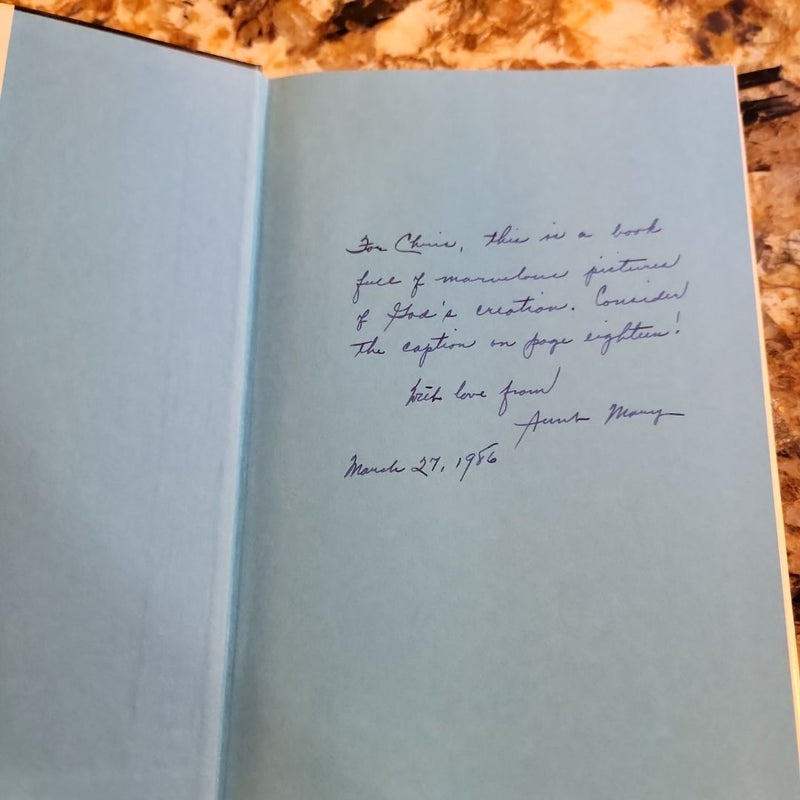 For Chris, this is a book
full of marvelous pictures
of God's creation. Consider
the caption on page eighteen!
With love from
Aunt Mary
March 27, 1986